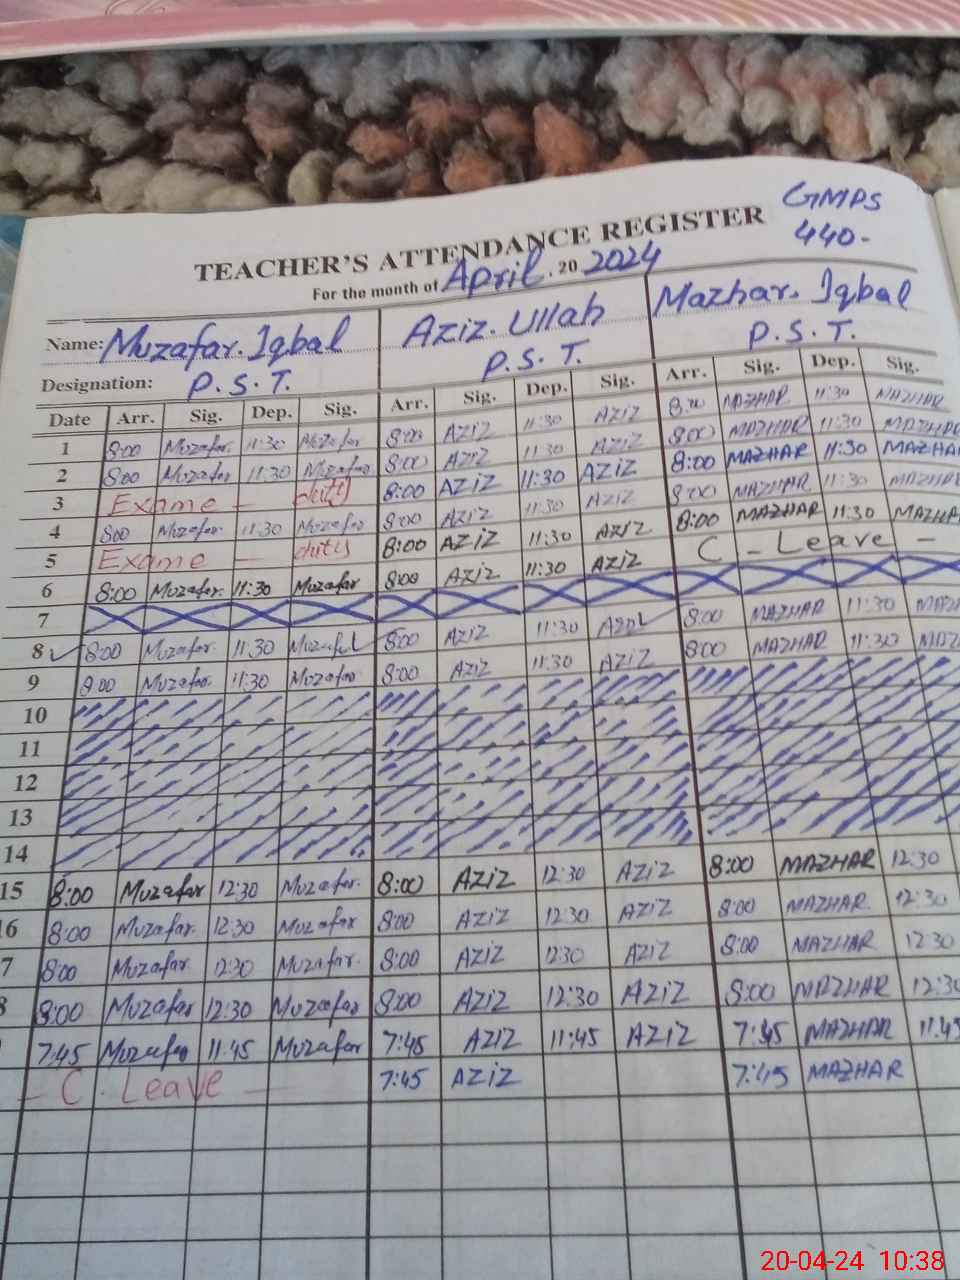 GMPS
440-
TEACHER'S ATTENDANCE REGISTER
For the month of April. 20 2024
Name: Muzafar. Iqbal Aziz. Ullah Mazhar. Iqbal
Designation: P.S.T. P.S.T. P.S.T.
Date Arr. Sig. Dep. Sig. Arr. Sig. Dep. Sig. Arr. Sig. Dep. Sig.
1 8:00 Muzafar. 11:30 Muzafar 8:00 AZIZ 11:30 AZIZ 8:00 MAZHAR 11:30 MAZHAR
2 8:00 Muzafar 11:30 Muzafar 8:00 AZIZ 11:30 AZIZ 8:00 MAZHAR 11:30 MAZHAR
3 Exame - 8:00 AZIZ 11:30 AZIZ 8:00 MAZHAR 11:30 MAZHA
4 8:00 Muzafar 11:30 Muzafar 8:00 AZIZ 11:30 AZIZ 8:00 MAZHAR 11:30 MAZHA
5 Exame - 8:00 AZIZ 11:30 AZIZ 8:00 MAZHAR 11:30 MAZHA
6 8:00 Muzafar. 11:30 Muzafar 8:00 AZIZ 11:30 AZIZ C - Leave -
7
8 8:00 Muzafar 11:30 8:00 AZIZ 11:30 8:00 MAZHAR 11:30
9 8:00 Muzafar. 11:30 Muzafar 8:00 AZIZ 11:30 AZIZ 8:00 MAZHAR 11:30
10
11
12
13
14
15 8:00 Muzafar 12:30 Muzafar. 8:00 AZIZ 12:30 AZIZ 8:00 MAZHAR 12:30
6 8:00 Muzafar. 12:30 Muzafar 8:00 AZIZ 12:30 AZIZ 8:00 MAZHAR. 12:30
7 8:00 Muzafar. 12:30 Muzafar. 8:00 AZIZ 12:30 AZIZ 8:00 MAZHAR 12:30
8 8:00 Muzafar 12:30 Muzafar 8:00 AZIZ 12:30 AZIZ 8:00 MAZHAR 12:30
7:45 Muzafar 11:45 Muzafar 7:45 AZIZ 11:45 AZIZ 7:45 MAZHAR 11:45
- C. Leave - 7:45 AZIZ 7:45 MAZHAR
20-04-24 10:38